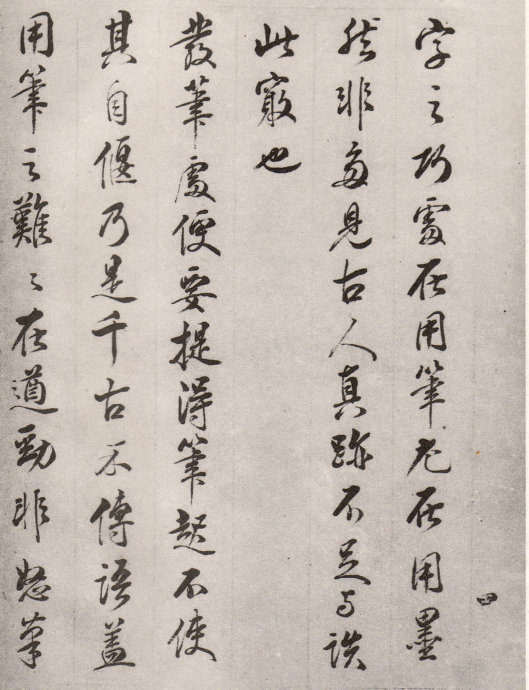 字之巧處在用筆尤在用墨
然非多見古人真跡不足與談
此竅也
發筆處便要提得筆起不使
其自偃乃是千古不傳語蓋
用筆之難難在遒勁非怒筆
四